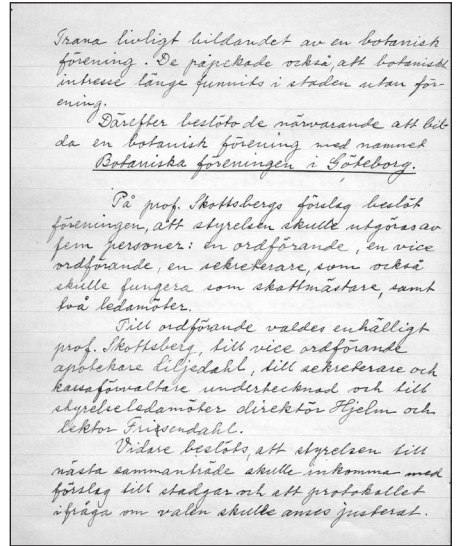 Trana livligt bildandet av en botanisk
förening. De påpekade också, att botaniskt
intresse länge funnits i staden utan för-
ening.
Därefter beslöto de närvarande att bil-
da en botanisk förening med namnet
Botaniska föreningen i Göteborg.
På prof. Skottsbergs förslag beslöt
föreningen, att styrelsen skulle utgöras av
fem personer: en ordförande, en vice
ordförande, en sekreterare, som också
skulle fungera som skattmästare, samt
två ledamöter.
Till ordförande valdes enhälligt
prof. Skottsberg, till vice ordförande
apotekare Liljedahl, till sekreterare och
kassaförvaltare undertecknad och till
styrelseledamöter direktör Hjelm och
lektor Friesendahl.
Vidare beslöts, att styrelsen till
nästa sammanträde skulle inkomma med
förslag till stadgar och att protokollet
ifråga om valen skulle anses justerat.